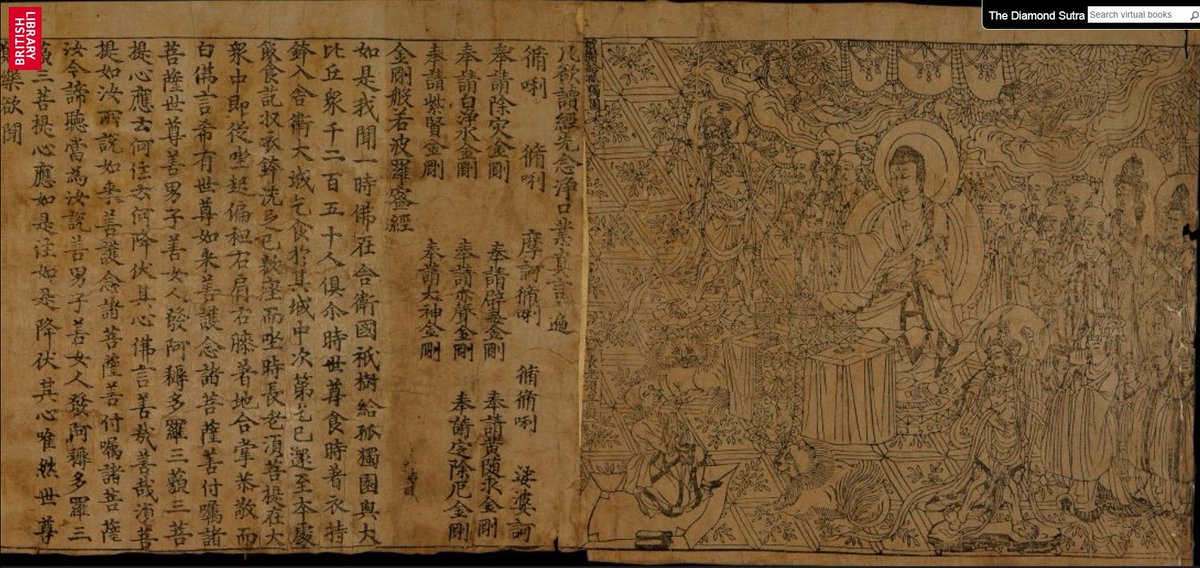 BRITISH
LIBRARY
The Diamond Sutra
Search virtual books
祇樹給孤獨園
凡欲讀經先念淨口業真言一遍
脩唎 脩唎 摩訶脩唎 脩脩唎 娑婆訶
奉請除灾金剛 奉請辟毒金剛 奉請黃隨求金剛
奉請白淨水金剛 奉請赤聲金剛 奉請定除厄金剛
奉請紫賢金剛 奉請大神金剛
金剛般若波羅蜜經
如是我聞一時佛在舍衛國祇樹給孤獨園與大
比丘衆千二百五十人俱尒時世尊食時著衣持
鉢入舍衛大城乞食於其城中次第乞已還至本處
飯食訖收衣鉢洗足已敷座而坐時長老須菩提在大
衆中即從坐起偏袒右肩右膝著地合掌恭敬而
白佛言希有世尊如來善護念諸菩薩善付囑諸
菩薩世尊善男子善女人發阿耨多羅三藐三菩
提心應云何住云何降伏其心佛言善哉善哉須菩
提如汝所說如來善護念諸菩薩善付囑諸菩薩
汝今諦聽當為汝說善男子善女人發阿耨多羅三
藐三菩提心應如是住如是降伏其心唯然世尊
願樂欲聞